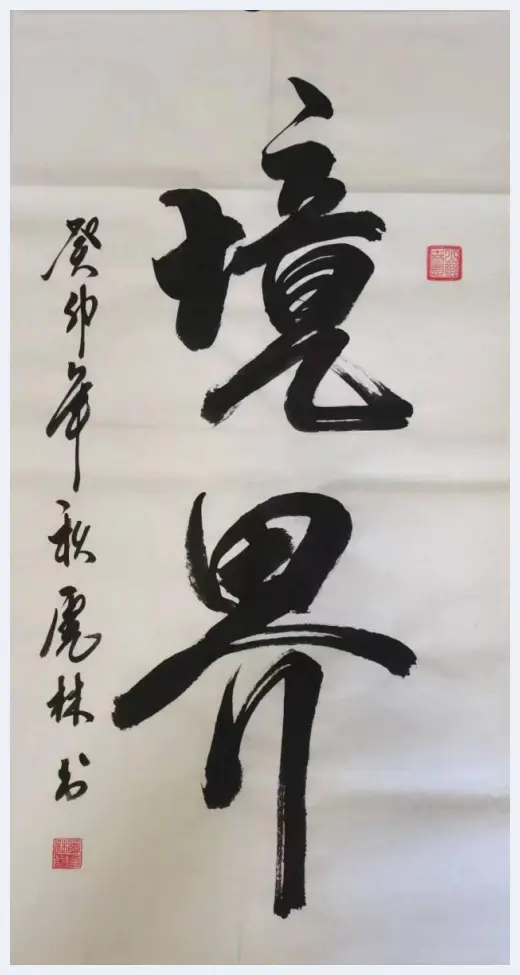 境界
癸卯年秋麗林书